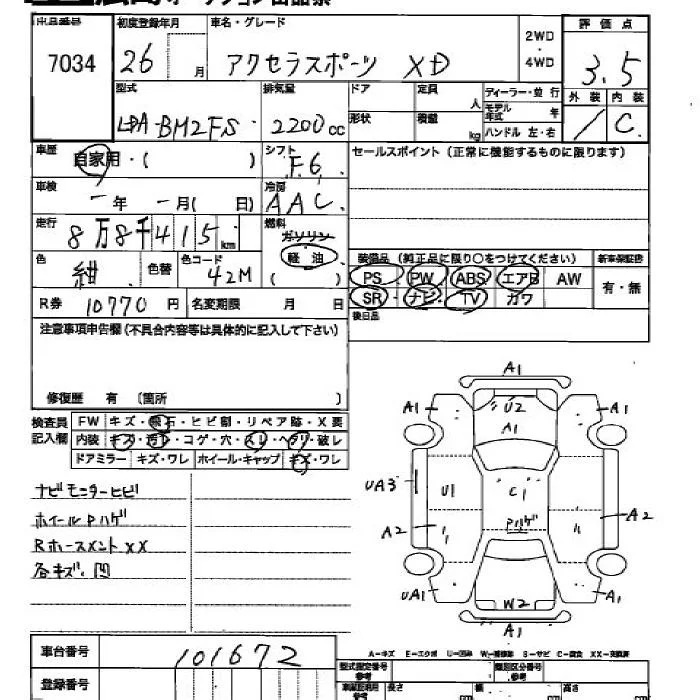 出品番号 初度登録年月 車名・グレード 2WD・4WD 評価点
7034 26 月 アクセラスポーツ XD 3.5
型式 排気量 ドア 定員 人 ディーラー・並行 外装 内装
LDA-BM2FS 2200cc 形状 積載 kg モデル年式 年 / C
ハンドル 左・右
車歴 自家用・( ) シフト F6 セールスポイント(正常に機能するものに限ります)
車検 年 月( 日) 冷房 AAC
走行 8万8千415km 燃料 ガソリン 軽油 ( )
色 紺 色替 色コード 42M
装備品(純正品に限り○をつけてください) 新車保証書
PS PW ABS エアB AW 有・無
SR ナビ TV カワ
R券 10770円 名変期限 月 日
後日品
注意事項申告欄(不具合内容等は具体的に記入して下さい)
修復歴 有 〔箇所 〕
検査員記入欄 FW キズ・飛石・ヒビ割・リペア跡・X要
内装 キズ・汚れ・コゲ・穴・スレ・ヘタリ・破レ
ドアミラー キズ・ワレ ホイール・キャップ キズ・ワレ
ナビモニターヒビ
ホイールPハゲ
Rホースメント XX
各キズ・凹
A1
A1 U2 A1
A1
UA3 U1 C1
Pハゲ
A2 A2
UA1 W2 A1
A1
A-キズ E-エクボ U-凹み W-補修跡 S-サビ C-腐食 XX-交換済
車台番号 101672
登録番号
型式指定番号 参考 類別区分番号 参考
長さ cm 幅 cm 高さ